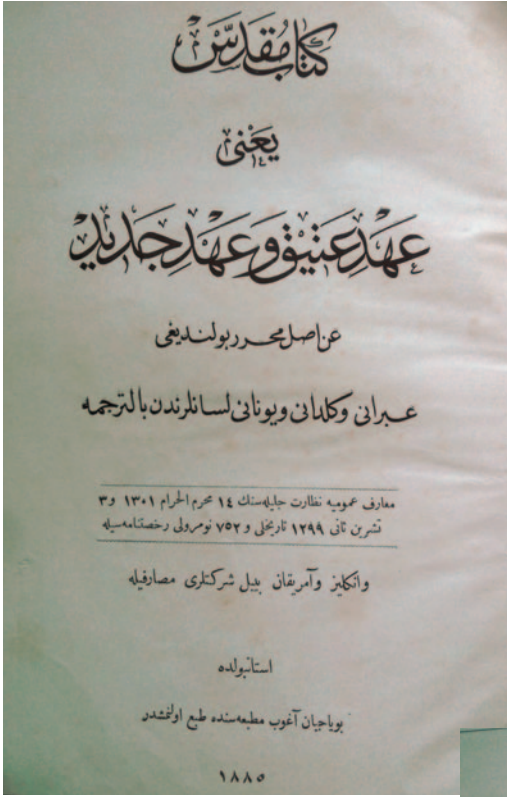 كتاب مقدّس
يعنى
عهد عتيق و عهد جديد
عن اصل محرر بولنديغى
عبرانى و كلدانى و يونانى لسانلرندن بالترجمه
معارف عموميه نظارت جليله‌سنك ١٤ محرم الحرام ١٣٠١ و ٣
تشرين ثانى ١٢٩٩ تاريخلى و ٧٥٢ نومرولى رخصتنامه‌سيله
و انكليز و آمريقان بيبل شركتلرى مصارفيله
استانبولده
بوياجيان آغوب مطبعه‌سنده طبع اولنمشدر
١٨٨٥